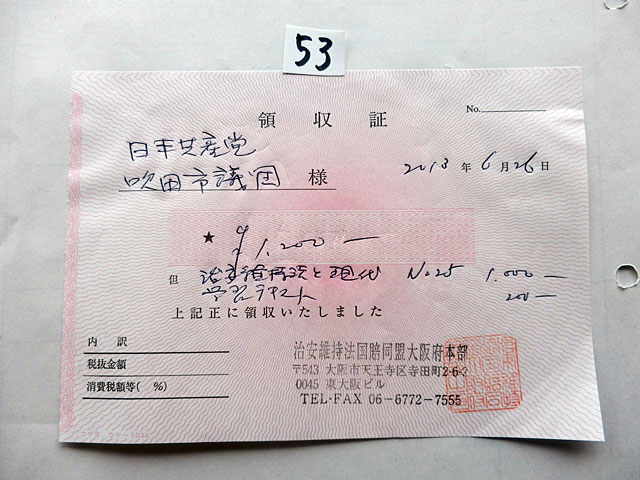 53
領収証
No.
日本共産党
吹田市議団 様
2013年6月26日
★ ¥1,200―
但 治安維持法と現代 No25 1,000―
学習テキスト 200―
上記正に領収いたしました
内訳
税抜金額
消費税額等( %)
治安維持法国賠同盟大阪府本部
〒543 大阪市天王寺区寺田町2-6-2
0045 東大阪ビル
TEL·FAX 06-6772-7555